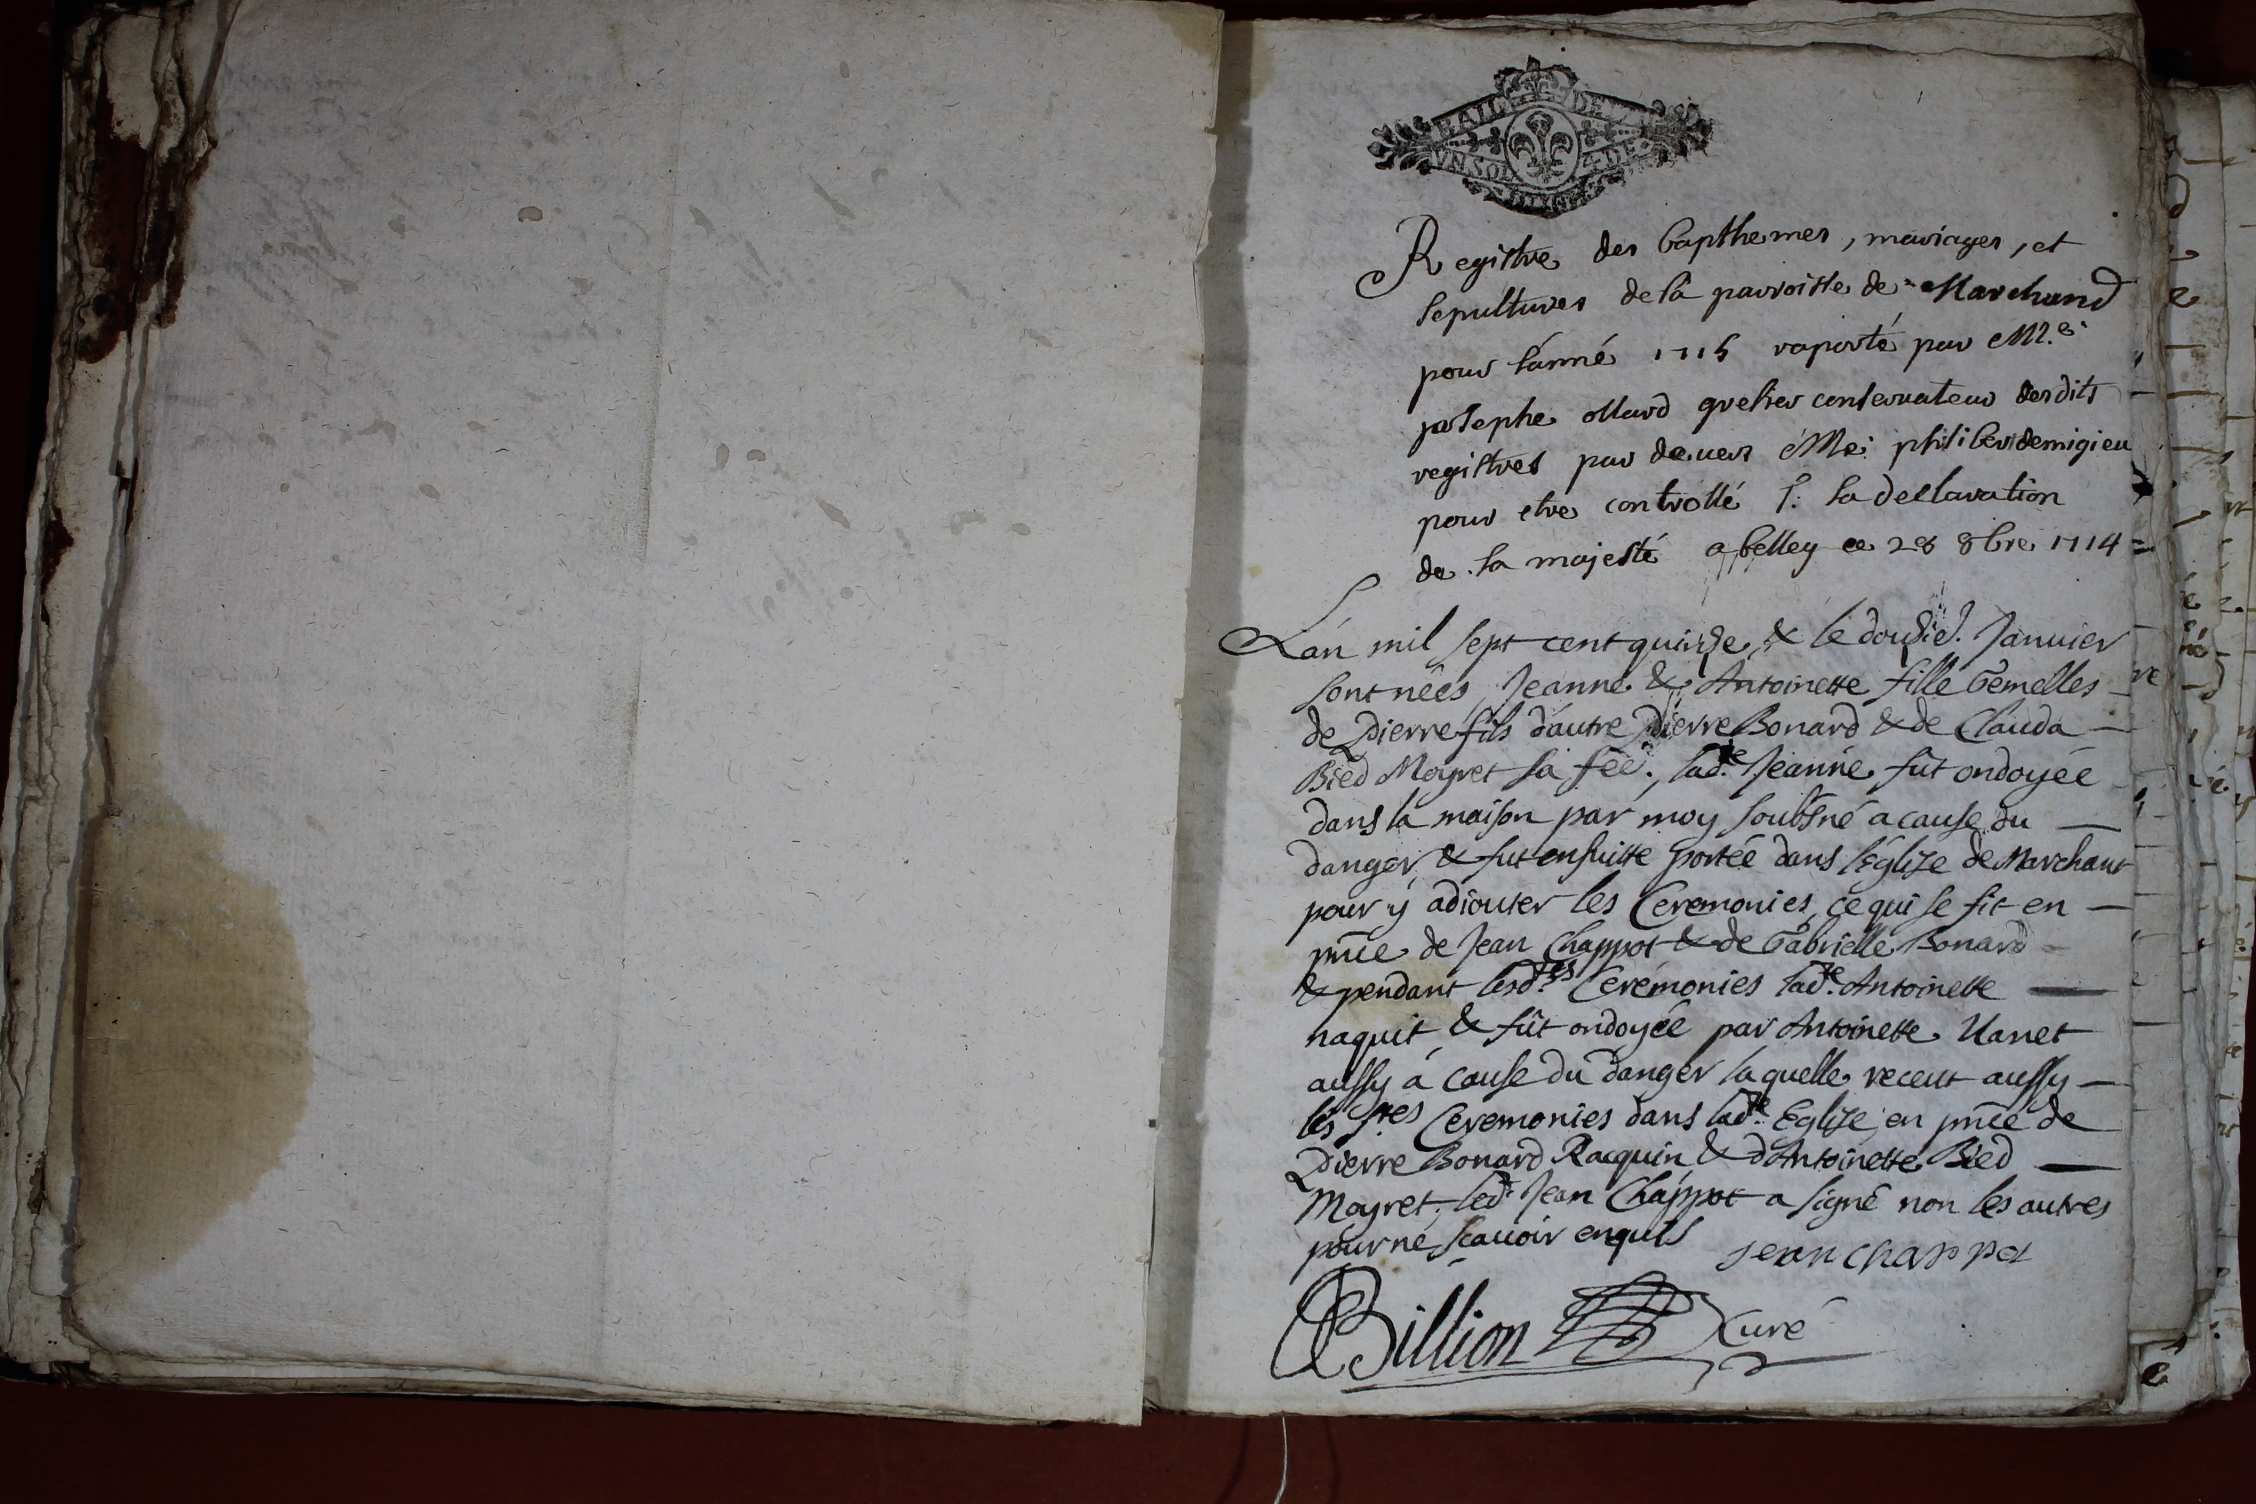 BAIL DE
UN SOL 4 DE
Registre des bapthemes, mariages, et
sepultures de la parroisse de Marchand
pour l'anné 1715 raporté par M.e
josephe ollard grefier conseruateur desdits
registres par deuers Me: philiber demigieu
pour etre controllé s: la declaration
de sa majesté a belley ce 28 8bre 1714
L'an mil sept cent quinze, & le douzie. Januier
sont nées Jeanne & Antoinette fille Gemelles
de Pierre fils d'autre Pierre Bonard & de Clauda
Bied Moyret sa fée., lad.e Jeanne fût ondoyée
dans la maison par moy soubsné a cause du
danger, & fut ensuitte portée dans l'église de Marchant
pour y adiouter les Ceremonies, ce qui se fit en
pñce de Jean Chappot & de Gabrielle Bonard
& pendant lesd.tes Ceremonies lad.te Antoinette
naquit & fût ondoyée par Antoinette Uanet
aussy à cause du danger laquelle receut aussy
les s.tes Ceremonies dans lad.te Eglise en pñce de
Pierre Bonard Racquin & d'Antoinette Bied
Moyret, led.t Jean Chappot a signé non les autres
pour ne scauoir enquis
jean chappot
Billion Curé